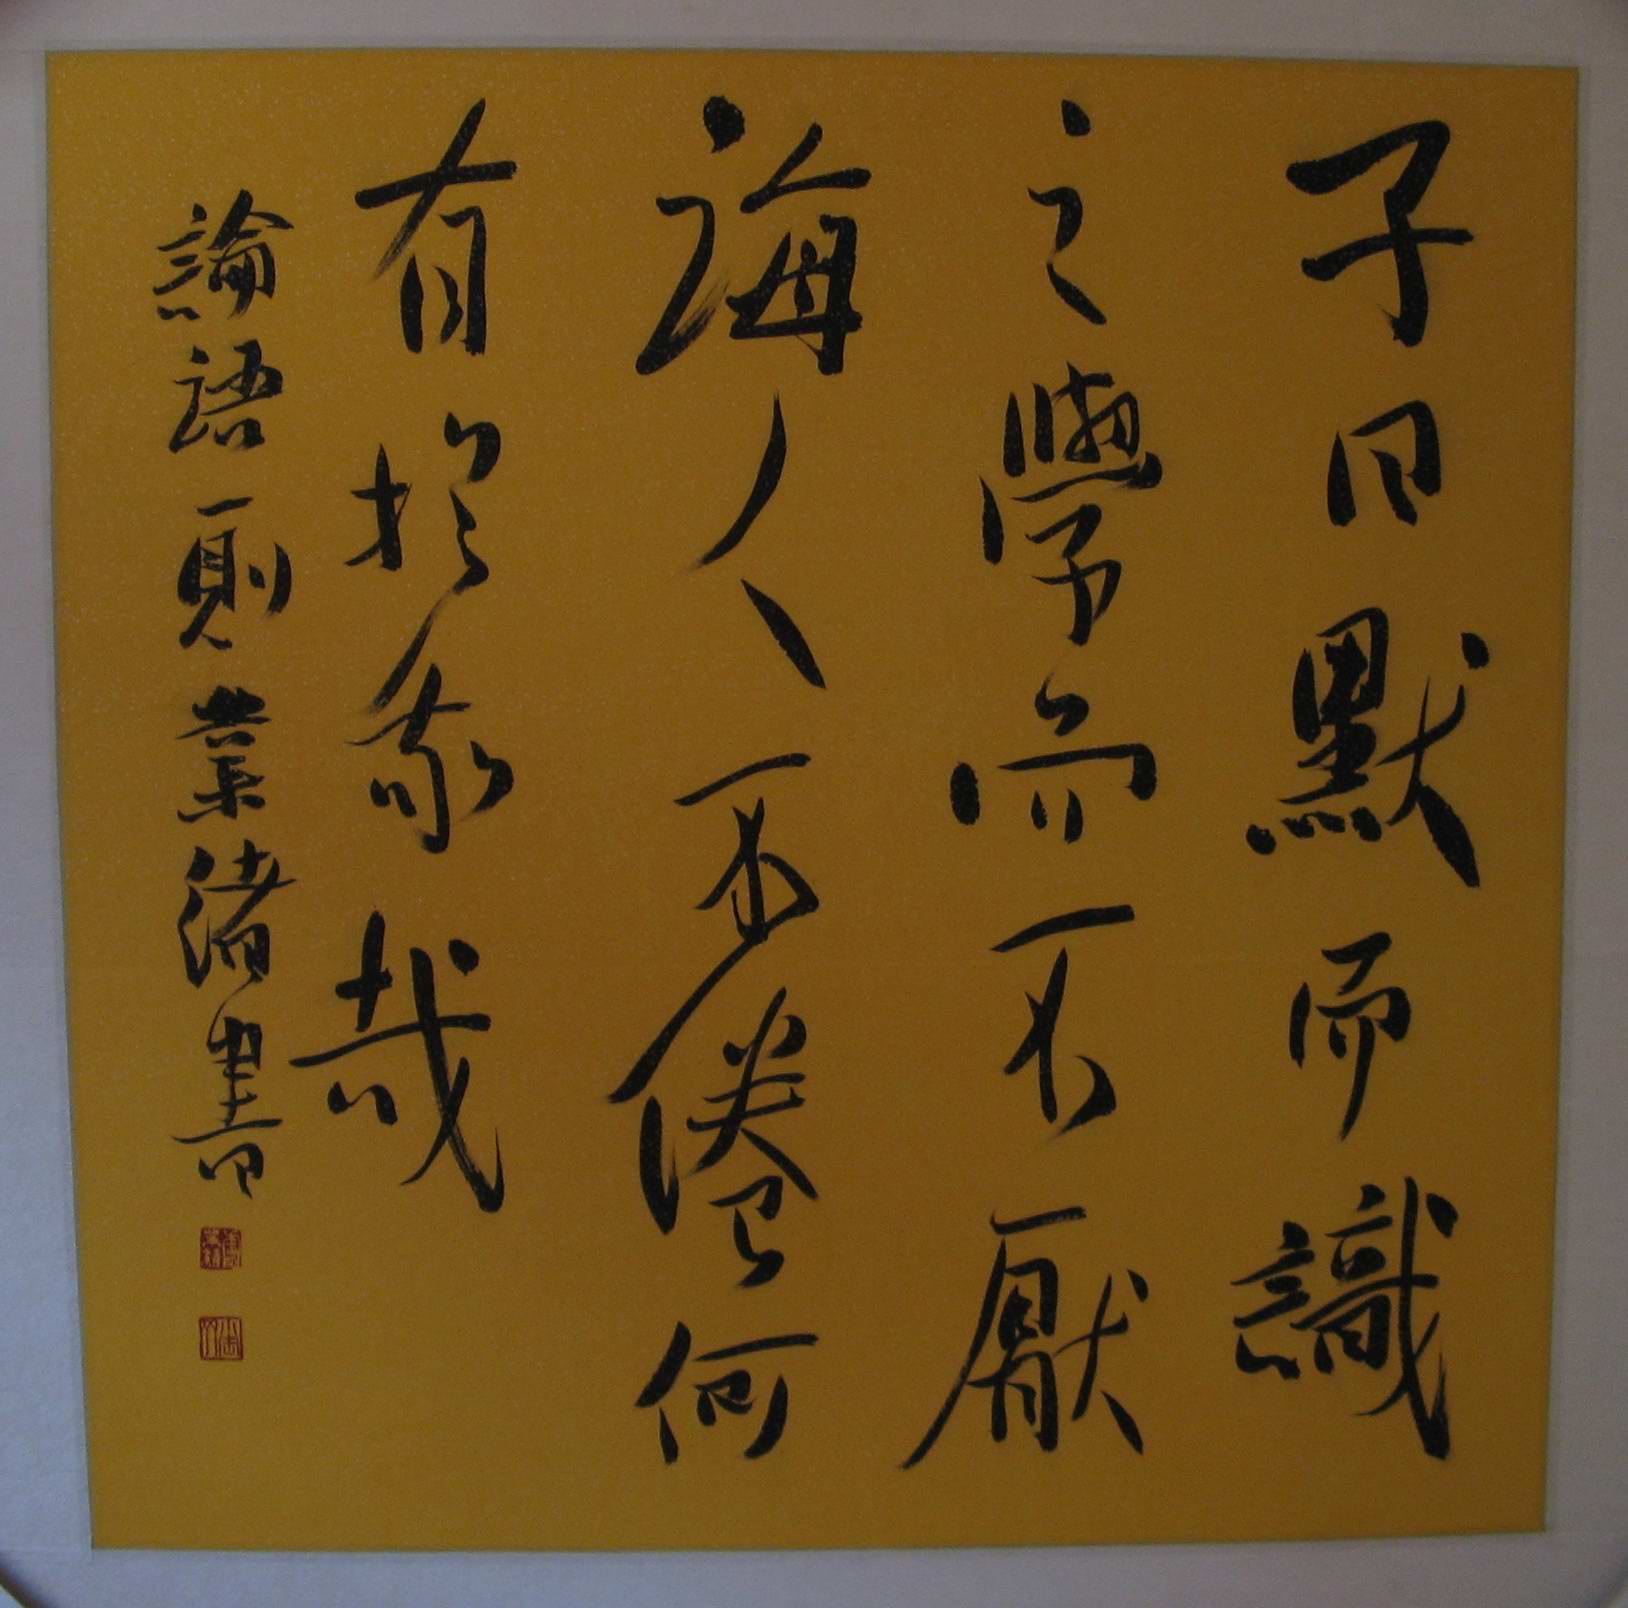 子曰默而識
之學而不厭
誨人不倦何
有於我哉
論語一則業緒書